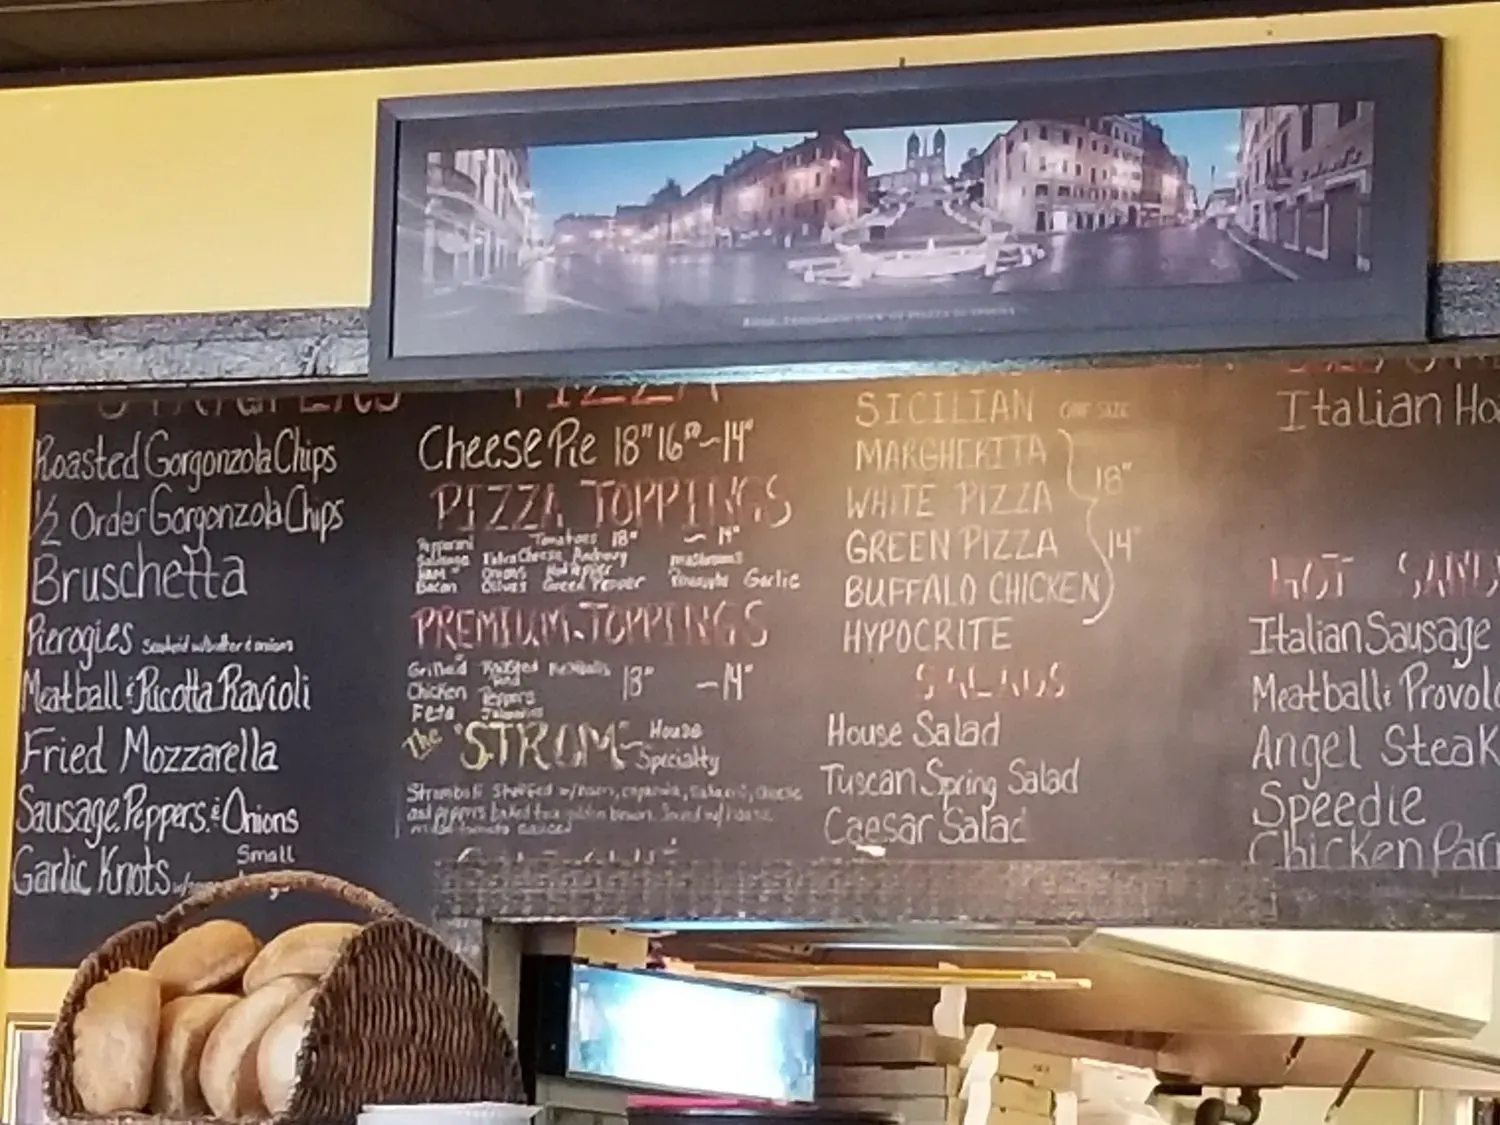 PIZZA
Roasted Gorgonzola Chips
1/2 Order Gorgonzola Chips
Bruschetta
Pierogies
Meatball & Ricotta Ravioli
Fried Mozzarella
Sausage, Peppers & Onions
Garlic Knots
Small
Cheese Pie 18" 16" ~ 14"
PIZZA TOPPINGS
Pepperoni Tomatoes 18" ~ 14"
Sausage Extra Cheese Anchovy Mushrooms
Ham Onions Hot Pepper
Bacon Olives Green Pepper Pineapple Garlic
PREMIUM TOPPINGS
Grilled Roasted Meatballs 18" ~ 14"
Chicken Red Peppers
Feta
The "STROM" ~ House
Specialty
Stromboli Stuffed w/ham, salami, cheese
and peppers baked golden brown
SICILIAN ONE SIZE
MARGHERITA
WHITE PIZZA 18"
GREEN PIZZA 14"
BUFFALO CHICKEN
HYPOCRITE
SALADS
House Salad
Tuscan Spring Salad
Caesar Salad
Italian Ho
HOT SAND
Italian Sausage
Meatball & Provolo
Angel Steak
Speedie
Chicken Par